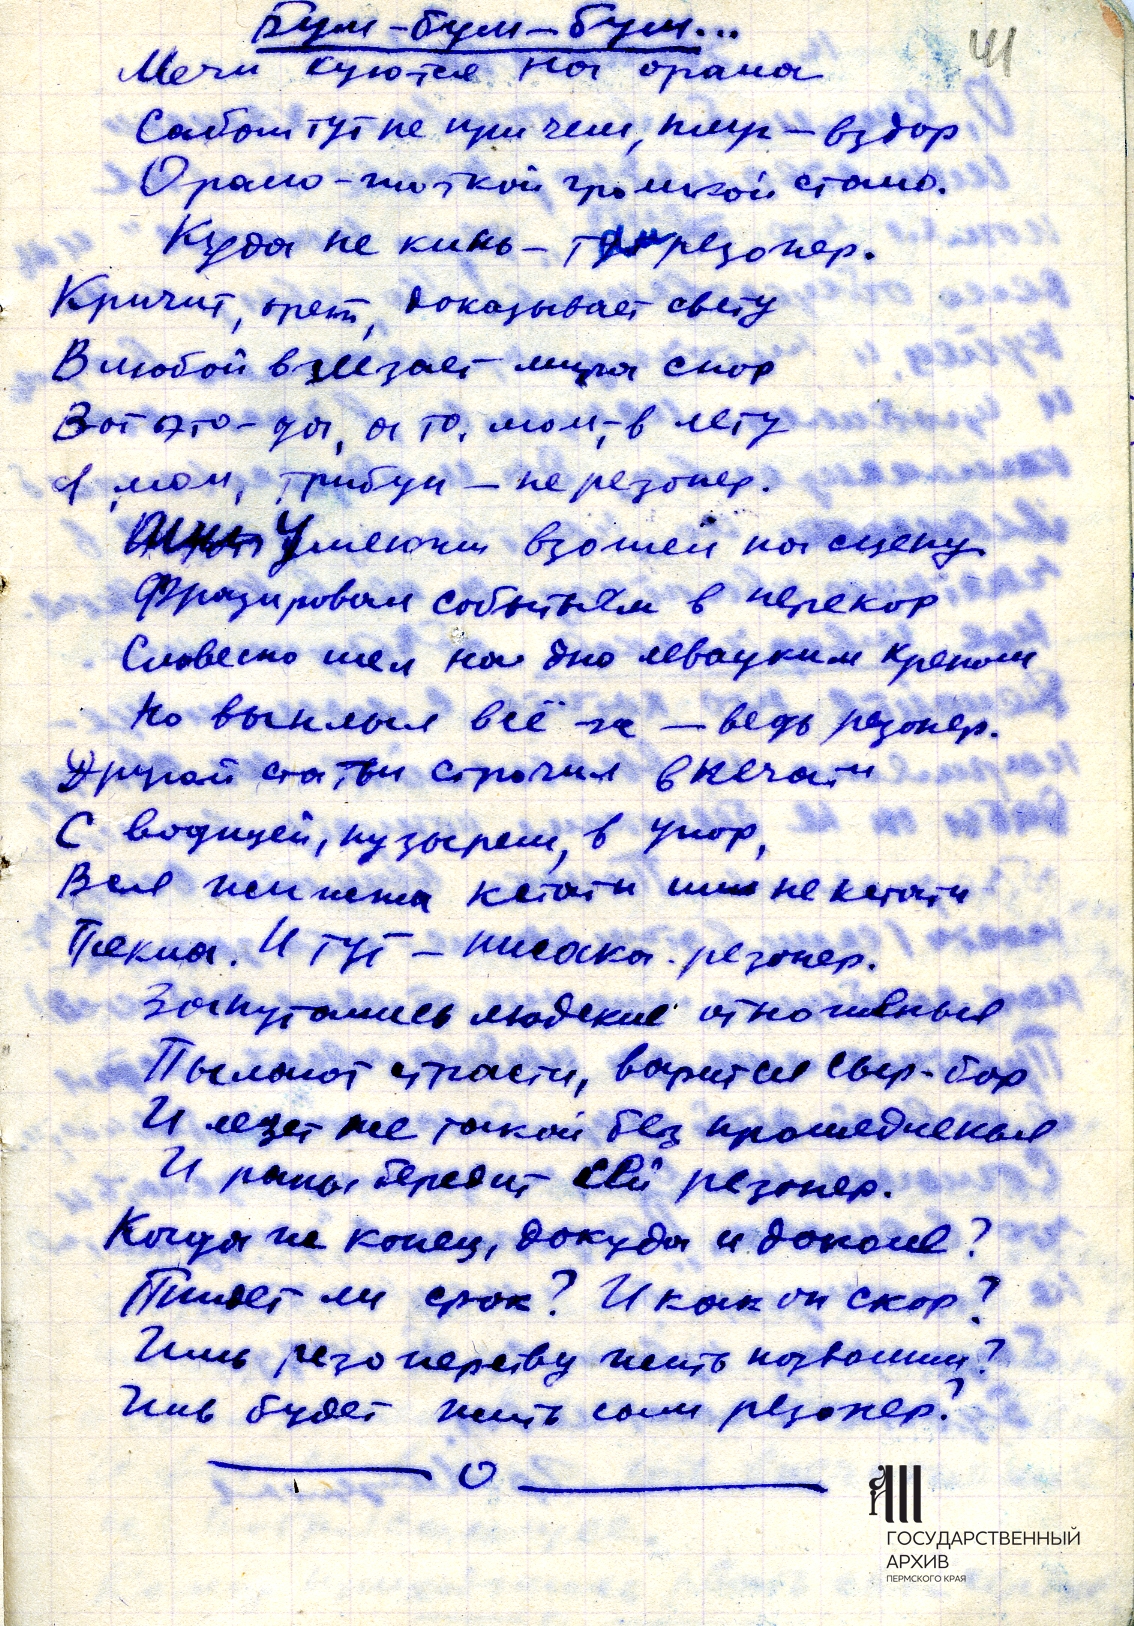 Бум-бум-бум...
41
Мечи куются на орала
Салют тут не при чем, пир – вздор
Орало – глоткой громкой стало.
Куда не кинь – там резонер.
Кричит, орет, доказывает свету
В любой влезает мира спор
Вот это – да, а то, мол, – в лету
Я, мол, трибун – не резонер.
Умелый взошел на сцену
Фразировал событьям в перекор
Словесно шел на дно левацким креном
Но выплыл всё же – ведь резонер.
Другой статьи строчил в печати
С водицей, пузырем, в упор,
Вся кстати не кстати
Текла. И тут – писака-резонер.
Запутались людские отношенья
Пылают страсти, варится сыр-бор
И лезет же такой без прошедненья
И раны бередит свои резонер.
Когда же конец, докуда и доколе?
Придет ли срок? И как он скор?
Иль резонерству жить позволим?
Иль будет жить сам резонер?
ГОСУДАРСТВЕННЫЙ
АРХИВ
ПЕРМСКОГО КРАЯ